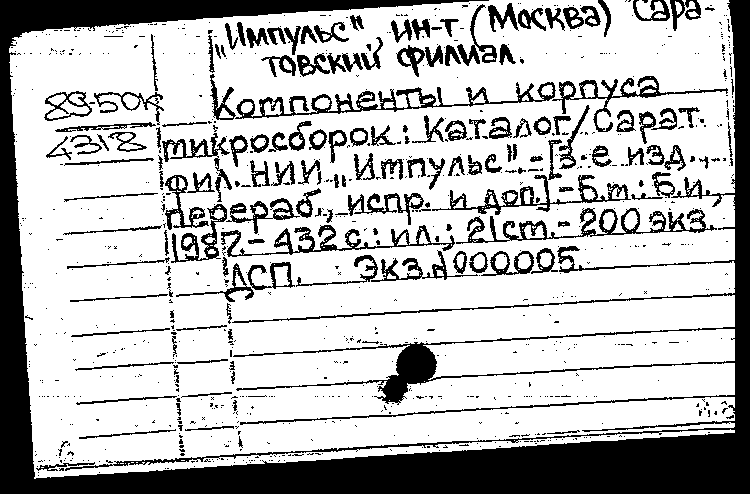 „Импульс", ин-т (Москва) Сара-
товский филиал.
89-50к Компоненты и корпуса
4318 микросборок: Каталог/Сарат.
фил. НИИ „Импульс". - [3-е изд.,
перераб., испр. и доп.]. - Б.м.: Б.и.,
1987. - 432 с.: ил.; 21 см. - 200 экз.
ДСП. Экз. № 000005.